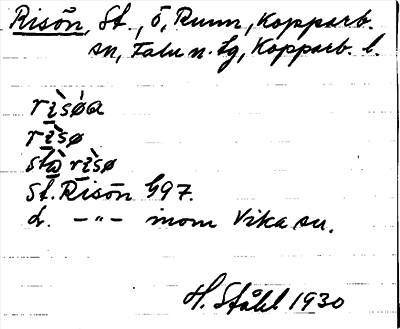 Risön, St., ö, Runn, Kopparb.
sn, Falu n. tg, Kopparb. l.
rìsø̀a
rìsø
stò rìsø
St. Risön G97.
d. –"– inom Vika sn.
H. Ståhl 1930